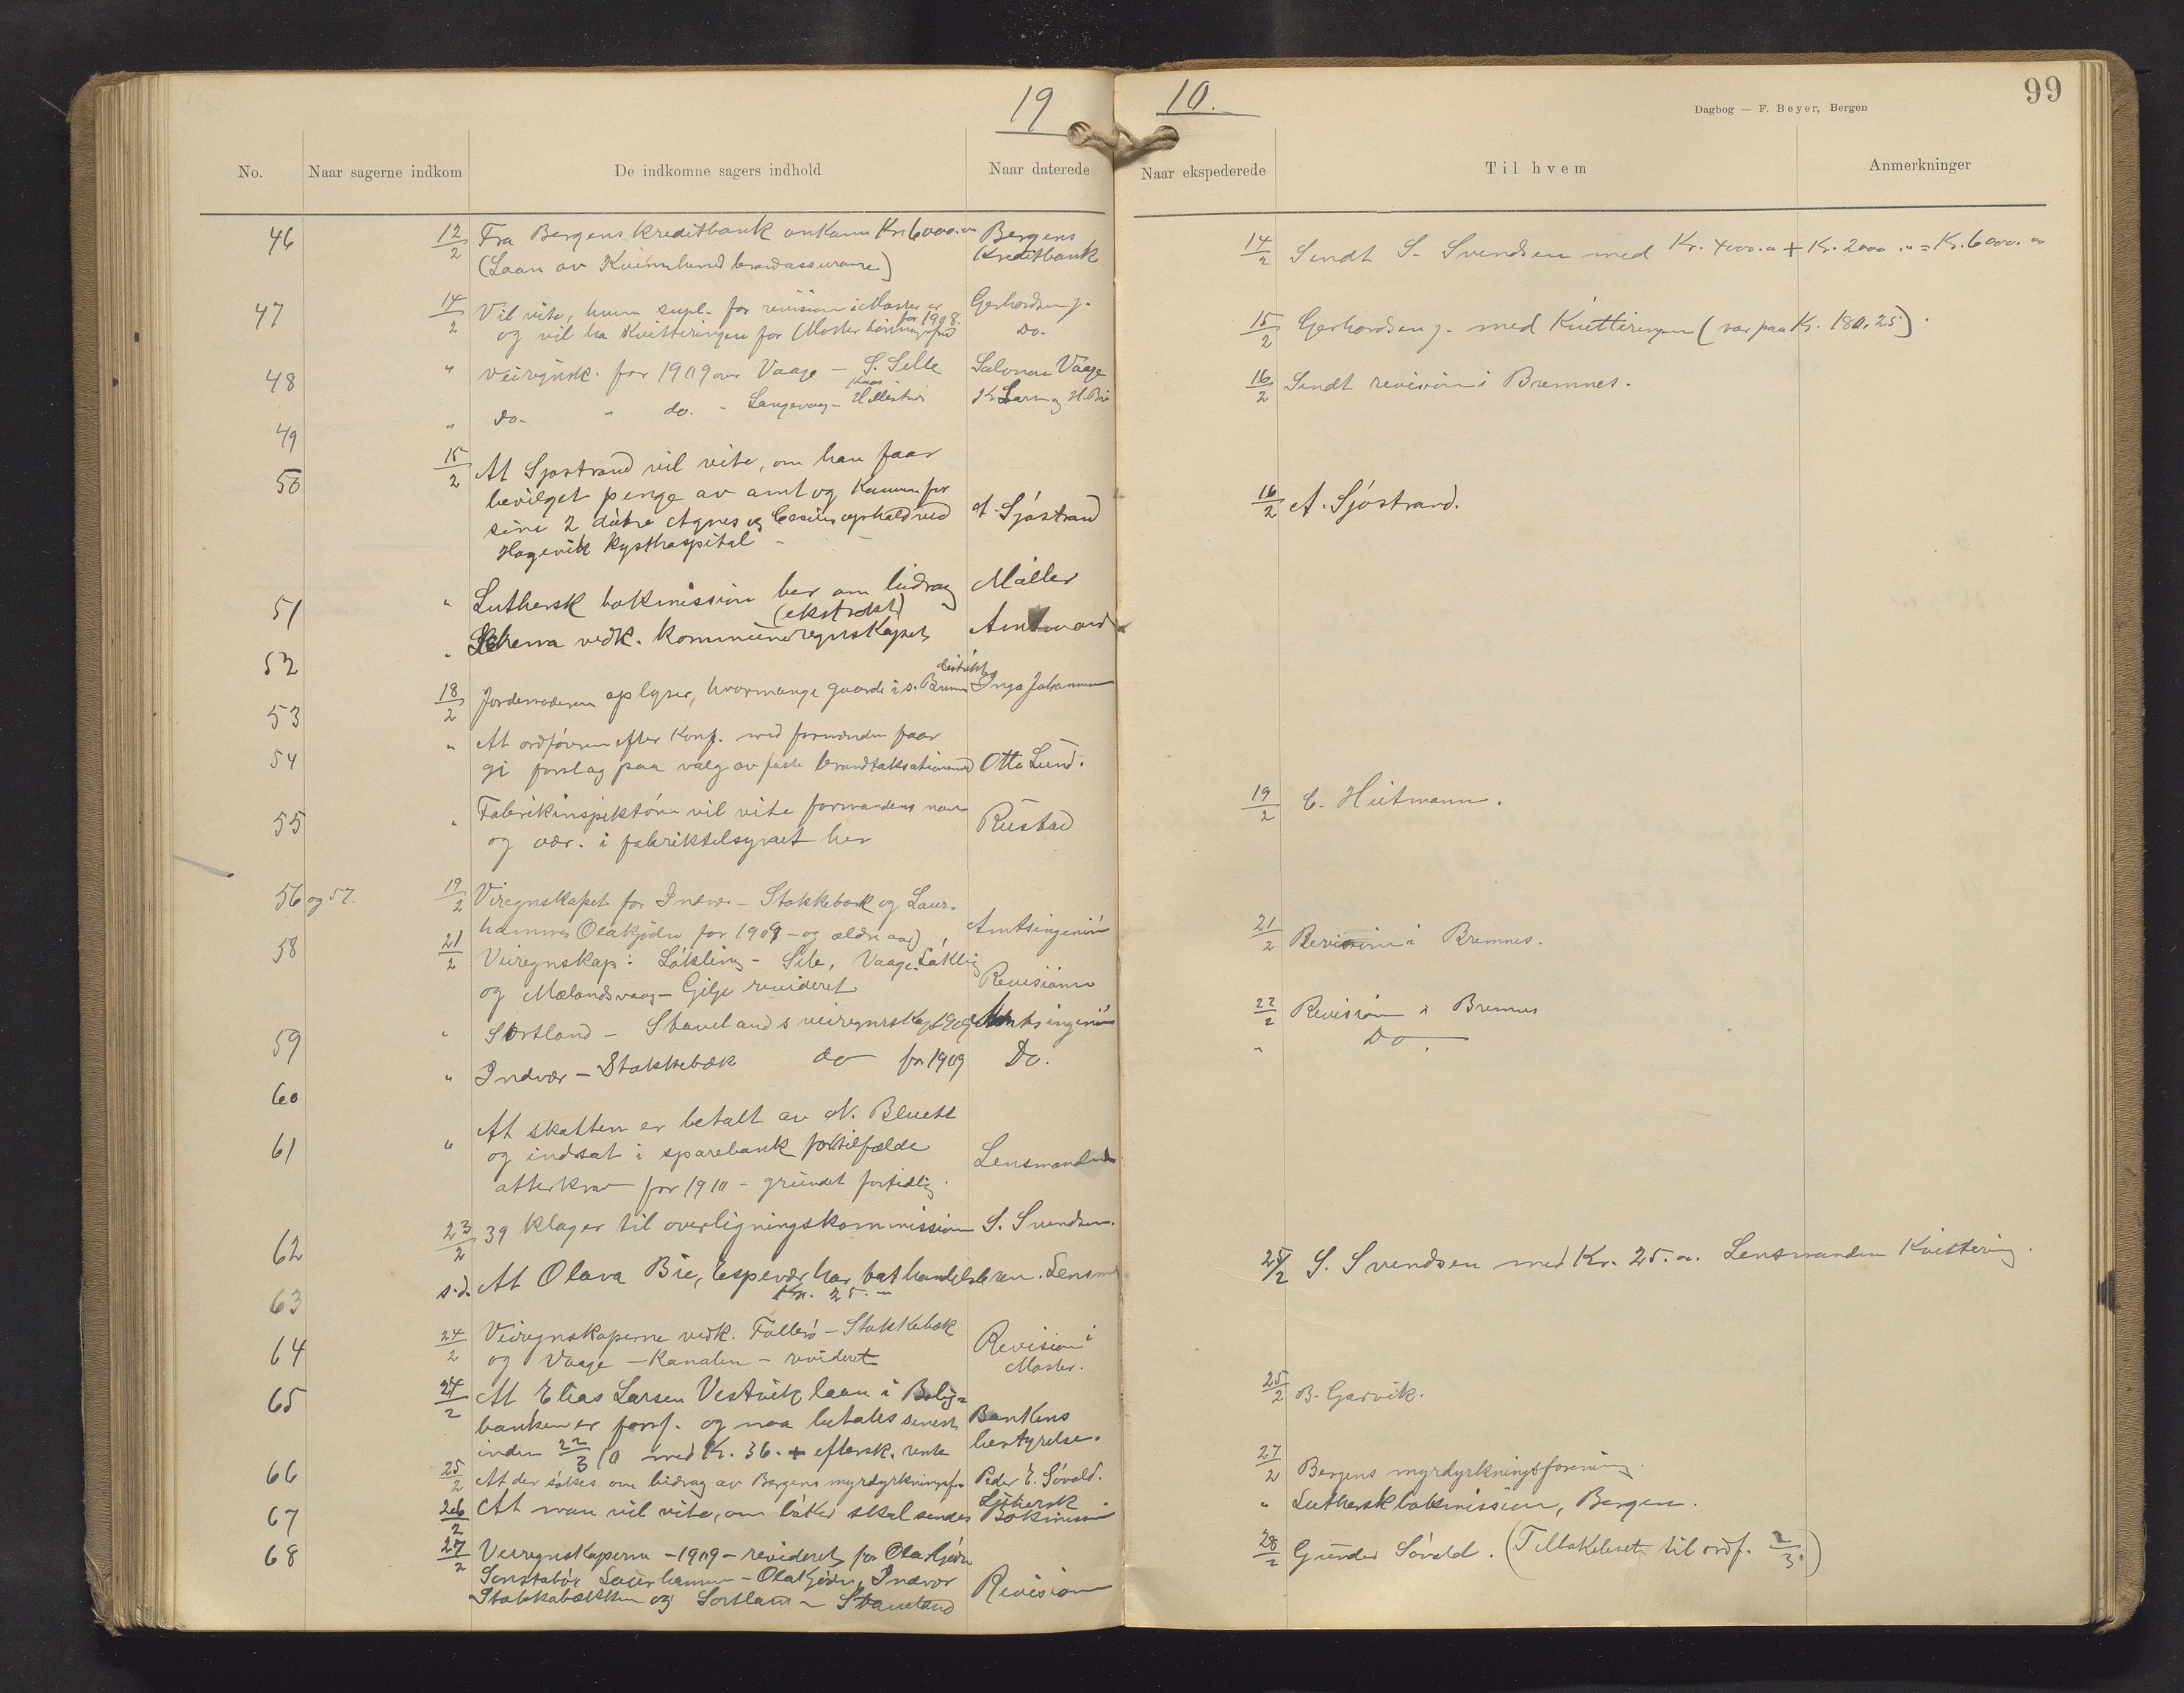 19 10.
99
Dagbog — F. Beyer, Bergen
No. Naar sagerne indkom De indkomne sagers indhold Naar daterede Naar ekspederede Til hvem Anmerkninger
46 12/2 Fra Bergens Kreditbank ankom Kr. 6000.00 Bergens
(Laan av brandassurance) Kreditbank
14/2 Sendt S. Svendsen med Kr. 4000.00 + Kr. 2000.00 = Kr. 6000.00
47 14/2 Vil vite, hvem supl. for revision i Moster er Gerhardsen j.
og vil ha Kvitteringen for (Moster for 1908. Do.
15/2 Gerhardsen j. med Kvitteringen (var paa Kr. 180,25).
48 " Veiregnsk. for 1909 over Vaage — S. Selle Salomon Vaage
16/2 Sendt revision i Bremnes.
49 " Do. " do. " Langevaag —
50 15/2 At Sjøstrand vil vite, om han faar
bevilget penge av amt og Kommune for
sine 2 døtre Agnes og ophold ved A. Sjøstrand
Hagevik Kysthospital
16/2 A. Sjøstrand.
51 " Luthersk bokmission ber om bidrag Møller
52 " Schema vedk. Kommuneregnskapet (ekstrakt) Amtmand
53 18/2 Jordemoderen oplyser, hvormange gaarde i s. Bremn. distrikt Inga Johannesen
54 " At ordføreren efter Konf. med formanden faar
gi forslag paa valg av faste brandtakstationsmænd Otto Lund.
55 " Fabrikinspektøren vil vite formandens navn
og adr. i fabriktilsynet her Rustad
19/2 C. Heitmann.
56 og 57. 19/2 Veiregnskapet for Indvær — Stokkebæk og Laur-
hammer Olakjødn for 1909 — og ældre aar) Amtsingeniør
21/2 Revision i Bremnes.
58 21/2 Veiregnskap: Løkling — Sele, Vaage-Løkling
og Mælandsvaag — Gilje revideret Revisionen
22/2 Revision i Bremnes
59 " Sortland — Stavelands veiregnskap 1909 Amtsingeniør
" Do.
60 " Indvær — Stokkebæk do for 1909 Do.
61 " At skatten er betalt av N. Bluett
og indsat i sparebank for tilfælde
atterkrav for 1910 — grundet fortidlig. Lensmanden
62 23/2 39 klager til overligningskommission S. Svendsen.
63 s.d. At Olava Bie, Espevær har tat handelsbrev. Lensm.
Kr. 25.—
25/2 S. Svendsen med Kr. 25.00. Lensmanden Kvittering.
64 24/2 Veiregnskaperne vedk. Føllerø — Stokkebæk
og Vaage — Kanalen — revideret Revision i Moster.
65 24/2 At Elias Larsen Vestvik laan i Bolig-
banken er forf. og maa betales senest Bankens
inden 22/3 10 med Kr. 36. + eftersk. rente bestyrelse.
25/2 B. Gjervik.
66 25/2 At der søkes om bidrag av Bergens myrdyrkningsf. Peder E. Søvold.
27/2 Bergens myrdyrkningsforening.
67 26/2 At man vil vite, om bøker skal sendes Luthersk Bokmission
" Luthersk bokmission, Bergen.
68 27/2 Veiregnskaperne — 1909 — revideret for Olakjødn
Sønstabø, Laurhammer — Olakjødn, Indvær
Stokkabækken og Sortland — Staveland Revision
28/2 Gunder Søvold. (Tilbakelevert til ordf. 2/3.)